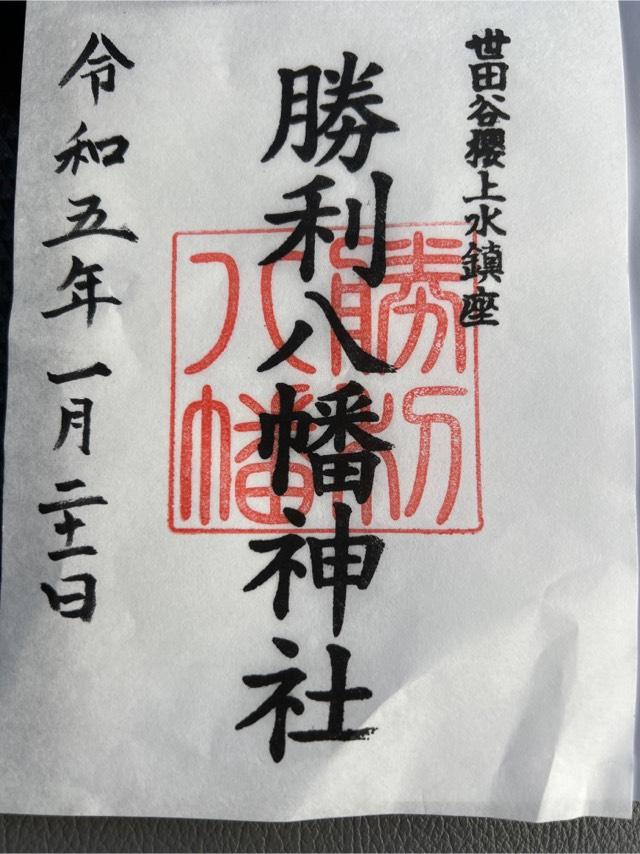 世田谷櫻上水鎮座
勝利八幡神社
勝利
八幡
令和五年一月二十一日